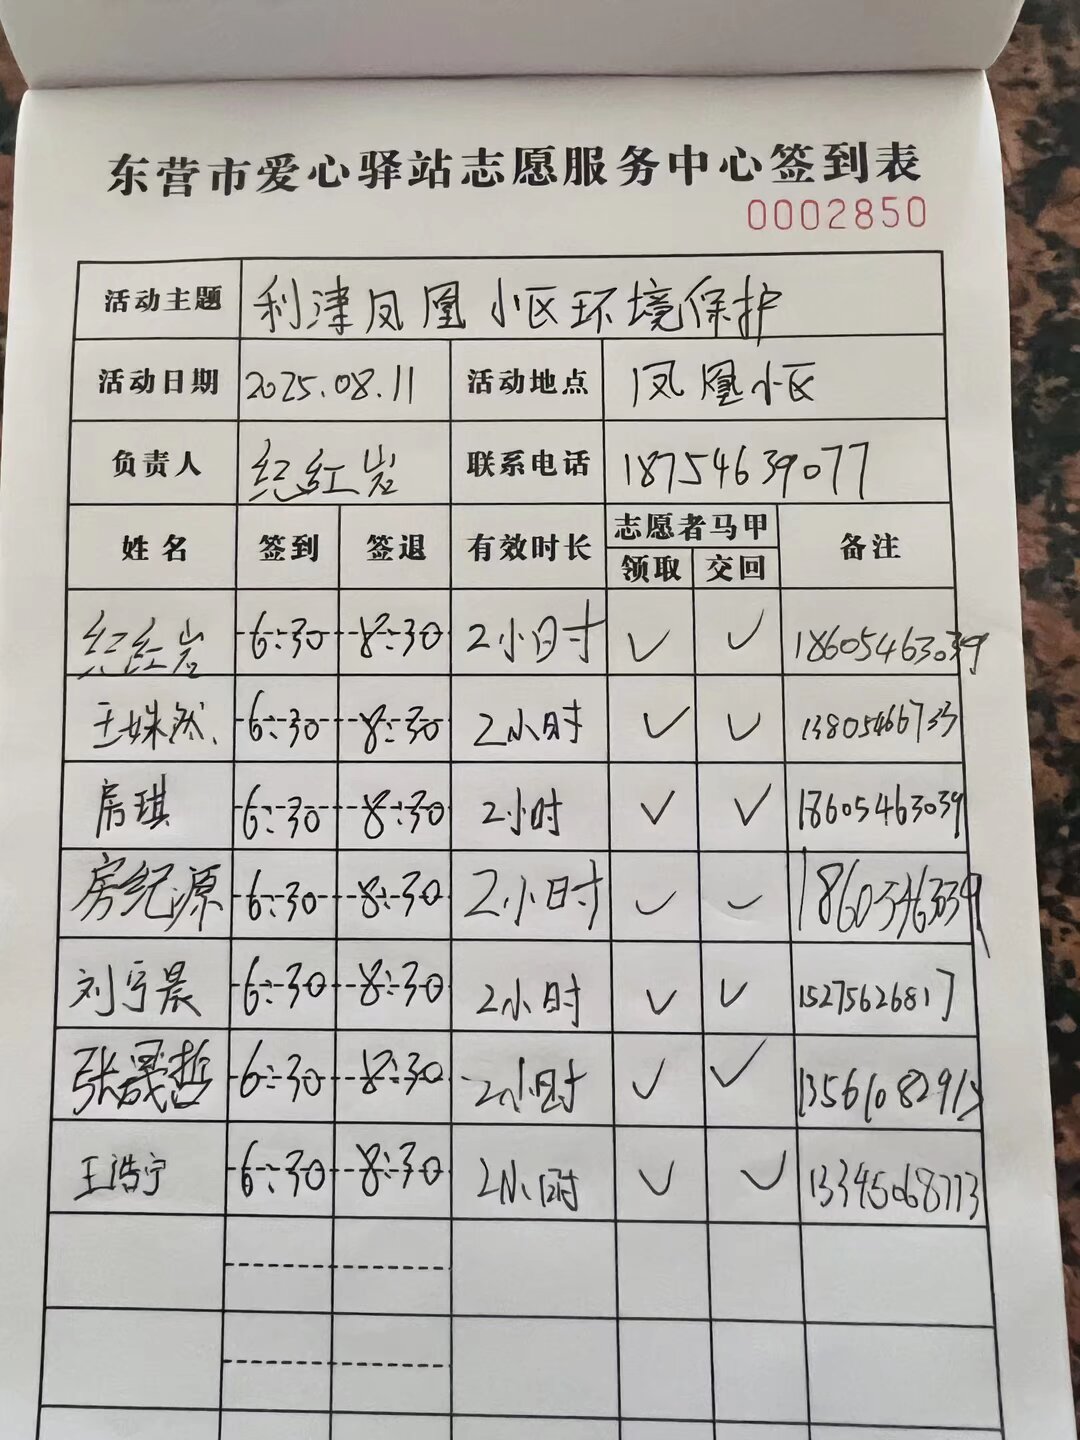 东营市爱心驿站志愿服务中心签到表
0002850
活动主题 利津凤凰小区环境保护
活动日期 2025.08.11 活动地点 凤凰小区
负责人 纪红岩 联系电话 18754639077
姓名 签到 签退 有效时长 志愿者马甲 备注
领取 交回
纪红岩 6:30 8:30 2小时 ✓ ✓ 18605463039
王姝然 6:30 8:30 2小时 ✓ ✓ 13805466733
房琪 6:30 8:30 2小时 ✓ ✓ 18605463039
房纪源 6:30 8:30 2小时 ✓ ✓ 18605463039
刘宁晨 6:30 8:30 2小时 ✓ ✓ 15275626817
张晟哲 6:30 8:30 2小时 ✓ ✓ 13561082913
王浩宁 6:30 8:30 2小时 ✓ ✓ 13345068773